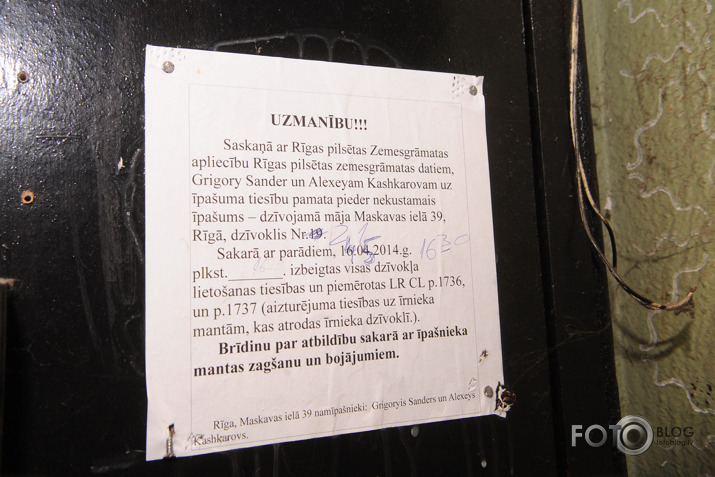 UZMANĪBU!!!
Saskaņā ar Rīgas pilsētas Zemesgrāmatas
apliecību Rīgas pilsētas zemesgrāmatas datiem,
Grigory Sander un Alexeyam Kashkarovam uz
īpašuma tiesību pamata pieder nekustamais
īpašums – dzīvojamā māja Maskavas ielā 39,
Rīgā, dzīvoklis Nr.
Sakarā ar parādiem, 16.04.2014.g. 1630
plkst.________. izbeigtas visas dzīvokļa
lietošanas tiesības un piemērotas LR CL p.1736,
un p.1737 (aizturējuma tiesības uz īrnieka
mantām, kas atrodas īrnieka dzīvoklī.).
Brīdinu par atbildību sakarā ar īpašnieka
mantas zagšanu un bojājumiem.
Rīga, Maskavas ielā 39 namīpašnieki: Grigoryis Sanders un Alexeys
Kashkarovs.
FOTOBLOG